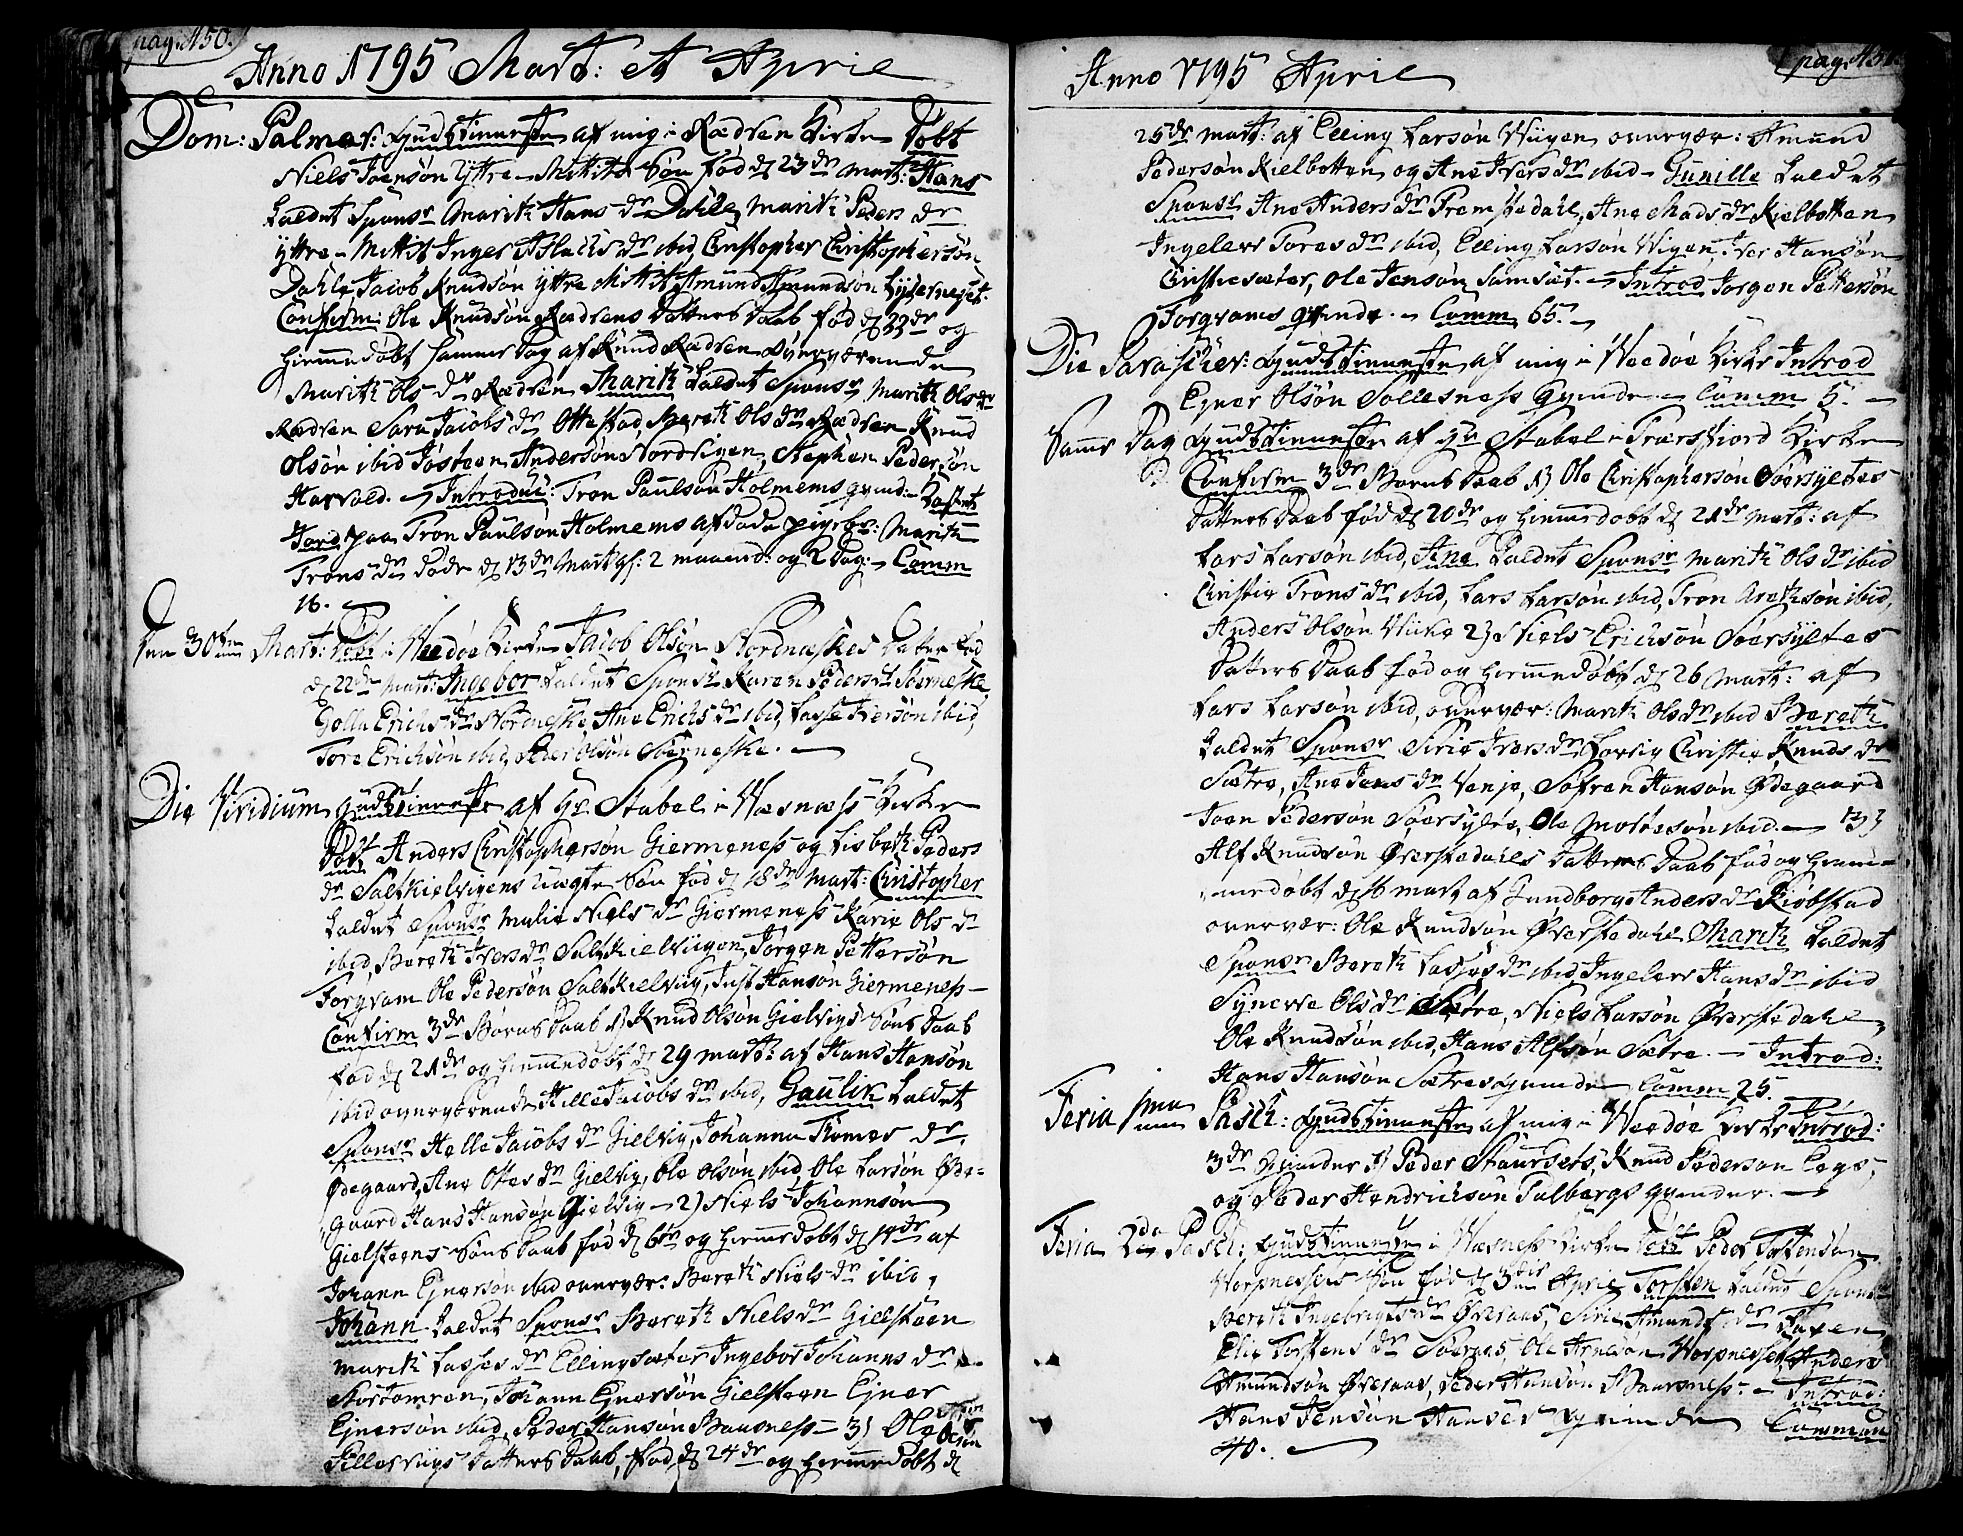 pag: 450.
Anno 1795 Mart: et Aprie
Dom: Palmar: Gudstienneste af mig i Rødven Kirke Døbt
Niels Joensøn Yttre-Mittits Søn fød d 23de Mart: Hans
kaldet Sponsr Marith Hans dr Dahle, Marith Peders dr
Yttre-Mittit Inger Aslachs dr ibid, Christopher Christophersøn
Dahle, Jacob Knudsøn Yttre Mittit Amund Amundsøn
Confirm: Ole Knudsøn Rødvens Datters Daab fød d 22de og
hiemmedøbt samme Dag af Knud Rødven overværende
Marith Ols dr Rødven Marith kaldet Sponsr Marith Ols dr
Rødven Sara Jacobs dr Ottestad, Bereth Ols dr Rødven Knud
Olsøn ibid Josteen Andersøn Nordvigen, Stephen Pedersøn
Harvold. - Introduc: Tron Paulsøn Holmems qvinde - Kastet
Jord paa Tron Paulsøn Holmems afdøde pigebr: Marith
Trons dr døde d 13de Mart gl: 2 maaned: og 2 Dag: - Comm
16. -
Den 30ten Mart: Døbt i Weedøe Kirke Jacob Olsøn Nordneskes Datter fød
d 22de Mart: Ingebor kaldet Sponsr Karen Peders dr Sørneske,
Golla Erichs dr Nordneske Ane Erichs dr ibid, Lasse Iversøn ibid,
Tore Erichsøn ibid, Peder Olsøn Sørneske. -
Die Viridium Gudstienneste af Hr Stabel i Wæsnæss Kirke
Døbt Anders Christophersøn Giermeness og Lisbeth Peders
dr Saltkielvigens uægte Søn fød d 18de Mart: Christopher
kaldet Sponsr Malie Niels dr Giermeness Karie Ols dr
ibid, Bereth Ivers dr Saltkielviigen, Jørgen Pettersøn
Torgram Ole Pedersøn Saltkielviig, Just Hansøn Giermeness -
Confirm 3de Børns Daab 1) Knud Olsøn Gielvigs Søns Daab
fød d 21de og hiemmedøbt d 29 Mart: af Hans Hansøn
ibid overværende Hille Jacobs dr ibid, Gaulik kaldet
Sponsr Helle Jacobs dr Gielvig, Johanna Thomes dr
Ødegaard, Ane Ottes dr Gielvig, Ole Olsøn ibid Ole Larsøn Øde-
gaard Hans Hansøn Gielvig - 2) Niels Johannsøn
Gielsteens Søns Daab fød d 6te og hiemmedøbt d 14de af
Johann Ejnersøn ibid overvær: Bereth Niels dr ibid,
Johann kaldet Sponsr Bereth Niels dr Gielsteen
Marith Lasses dr Ellingsæter Ingebor Johanns dr
Nortomren, Johann Ejnersøn Gielsteen Ejner
Ejnersøn ibid, Peder Hansøn Baasness - 3) Ole Olsøn
Datters Daab, fød d 24de og hiemmedøbt d
pag: 451
Anno 1795 Aprie
25de Mart: af Elling Larsøn Wiigen overvær: Amund
Pedersøn Kielbotten og Ane Ivers dr ibid - Gunille kaldet
Sponsr Ane Anders dr Fremstedahl, Ane Mads dr Kielbotten
Ingeler Tores dr ibid, Elling Larsøn Wigen, Iver Hansøn
Christiesæter, Ole Jensøn Samset. - Introd Jørgen Pettersøn
Torgrams qvinde. - Comm 65. -
Die Parascher: Gudstienneste af mig i Weedøe Kirke Introd
Ejner Olsøn Sollesness Qvinde - Comm 5. -
Samme Dag Gudstienneste af Hr Stabel i Træsfiord Kirke
Confirm 3de Børns Daab 1) Ole Christophersøn Soersyltes
Datters Daab fød d 20de og hiemedøbt d 21de Mart: af
Lars Larsøn ibid, Ane kaldet Sponsr Marith Ols dr ibid
Christie Trons dr ibid, Lars Larsøn ibid, Tron Arethsøn ibid,
Anders Olsøn Wiike 2) Niels Erichsøn Soersyltes
Datters Daab fød og hiemmedøbt d 26 Mart: af
Lars Larsøn ibid, overvær: Marith Ols dr ibid Bereth
kaldet Sponsr Siria Ivers dr Hovsig Christie Knuds dr
Sætre, Ane Jens dr Venje, Sofren Hansøn Ødegaard
Joen Pedersøn Soersylte, Ole ibid. - 3)
Alf Knudsøn Øverstedahls Datters Daab fød og hiem-
medøbt d 16 Mart af Gundborg Anders dr Kiøbstad
overvær: Ole Knudsøn Øverstedahl Marith kaldet
Sponsr Bereth Lasses dr ibid Ingeler Hans dr ibid
Synevve Ols dr Sætre, Niels Larsøn Øverstedahl,
Ole Knudsøn ibid, Hans Alfsøn Sætre. - Introd:
Hans Hansøn Sætres qvinde Comm 25. -
Feria 1ma Pasch: Gudstienneste af mig i Weedøe Kirke Introd:
3de Qvinder 1) Peder Staursets, Knud Pedersøn
og Peder Hendrichsøn Talbergs qvinder. -
Feria 2da Pasch: Gudstienneste i Wæsness Kirke Døbt Peder Torstensøn
Worpnessets Søn fød d 3die Aprie Torsten kaldet Spons
Bereth Ingebrigts dr Øveraas, Siri Amunds dr Faxen
Elie Torstens dr Soeraas, Ole Arnesøn Worpnesset, Anders
Amundsøn Øveraas, Peder Hansøn Baasness. - Introd:
Hans Jensøn Hanses qvinde Common
40. -